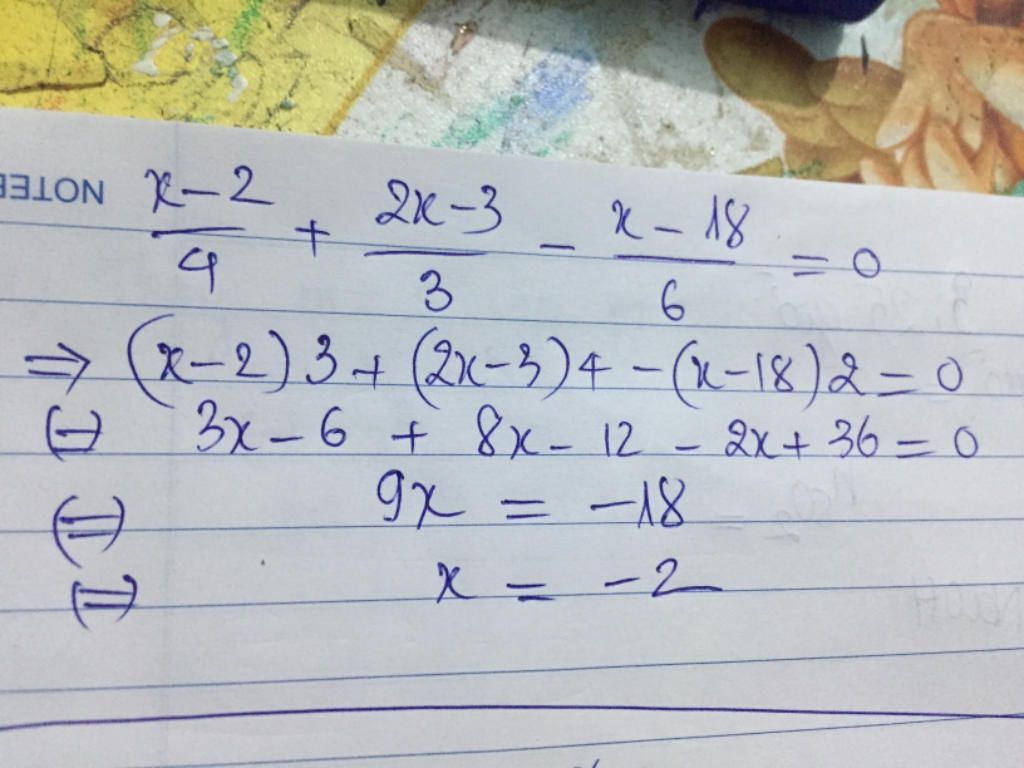 NOTEB
x-2/4 + 2x-3/3 - x-18/6 = 0
⇒ (x-2)3 + (2x-3)4 - (x-18)2 = 0
(=) 3x-6 + 8x-12 - 2x+36 = 0
(=) 9x = -18
(=) x = -2
NaOH